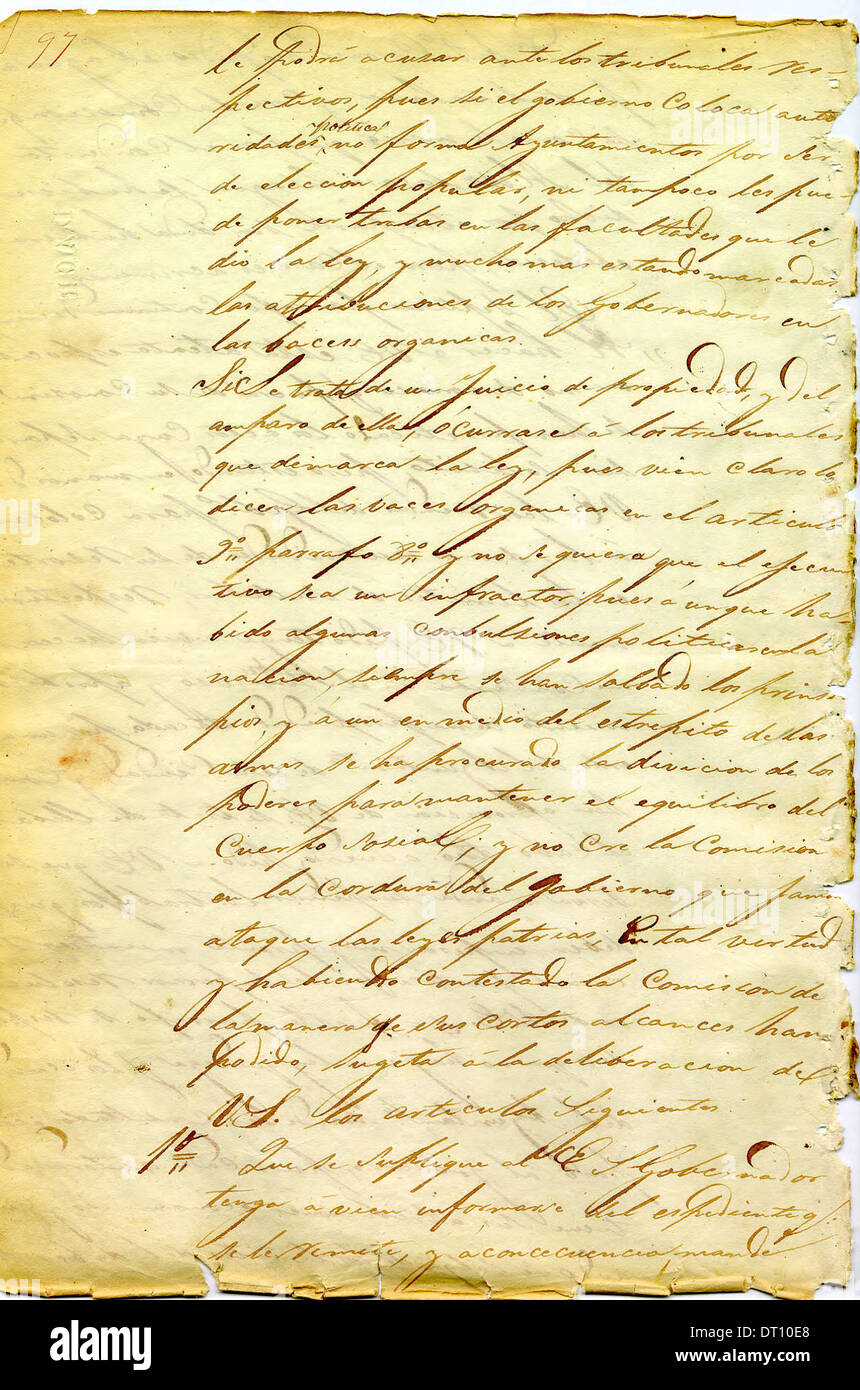 97
le podrá acusar ante los tribunales res-
pectivos, pues si el gobierno coloca auto
ridades politicas, no forma Ayuntamientos por ser
de eleccion popular, ni tampoco les pue
de poner trabas en las facultades que le
dio la ley, y mucho mas estando marcadas
las attribuciones de los Gobernadores en
las bacess organicas.
Si Se trata de un Juicio de propiedad, y del
amparo de ella, ócurrase á los tribunales
que demarca la ley, pues vien claro lo
dicen las vaces organicas en el articulo
9º parrafo 8º y no se quiera que el ejecu
tivo sea un infractor, pues á unque ha
bido algunas conbulsiones politicas en la
nacion, siempre se han salbado los prinsi
pios, y á un en medio del estrepito de las
armas se ha procurado la divicion de los
poderes para mantener el equilibro del
Cuerpo sosial; y no cre la Comision
en la cordura del Gobierno que jama
ataque las leyes patrias, En tal virtud
y habiendo contestado la Comision de
la manera qe. sus cortos alcances han
podido, sugeta á la deliberacion de
V.S. los articulos Siguientes
1º Que se suplique al Ecs. S. Gobernador
tenga á vien informarse del espediente q.
se le remite, y á concecuencia, mande
alamy
alamy
alamy
a
a
a
a
alamy
Image ID: DT10E8
www.alamy.com
alamy stock photo
DT10E8